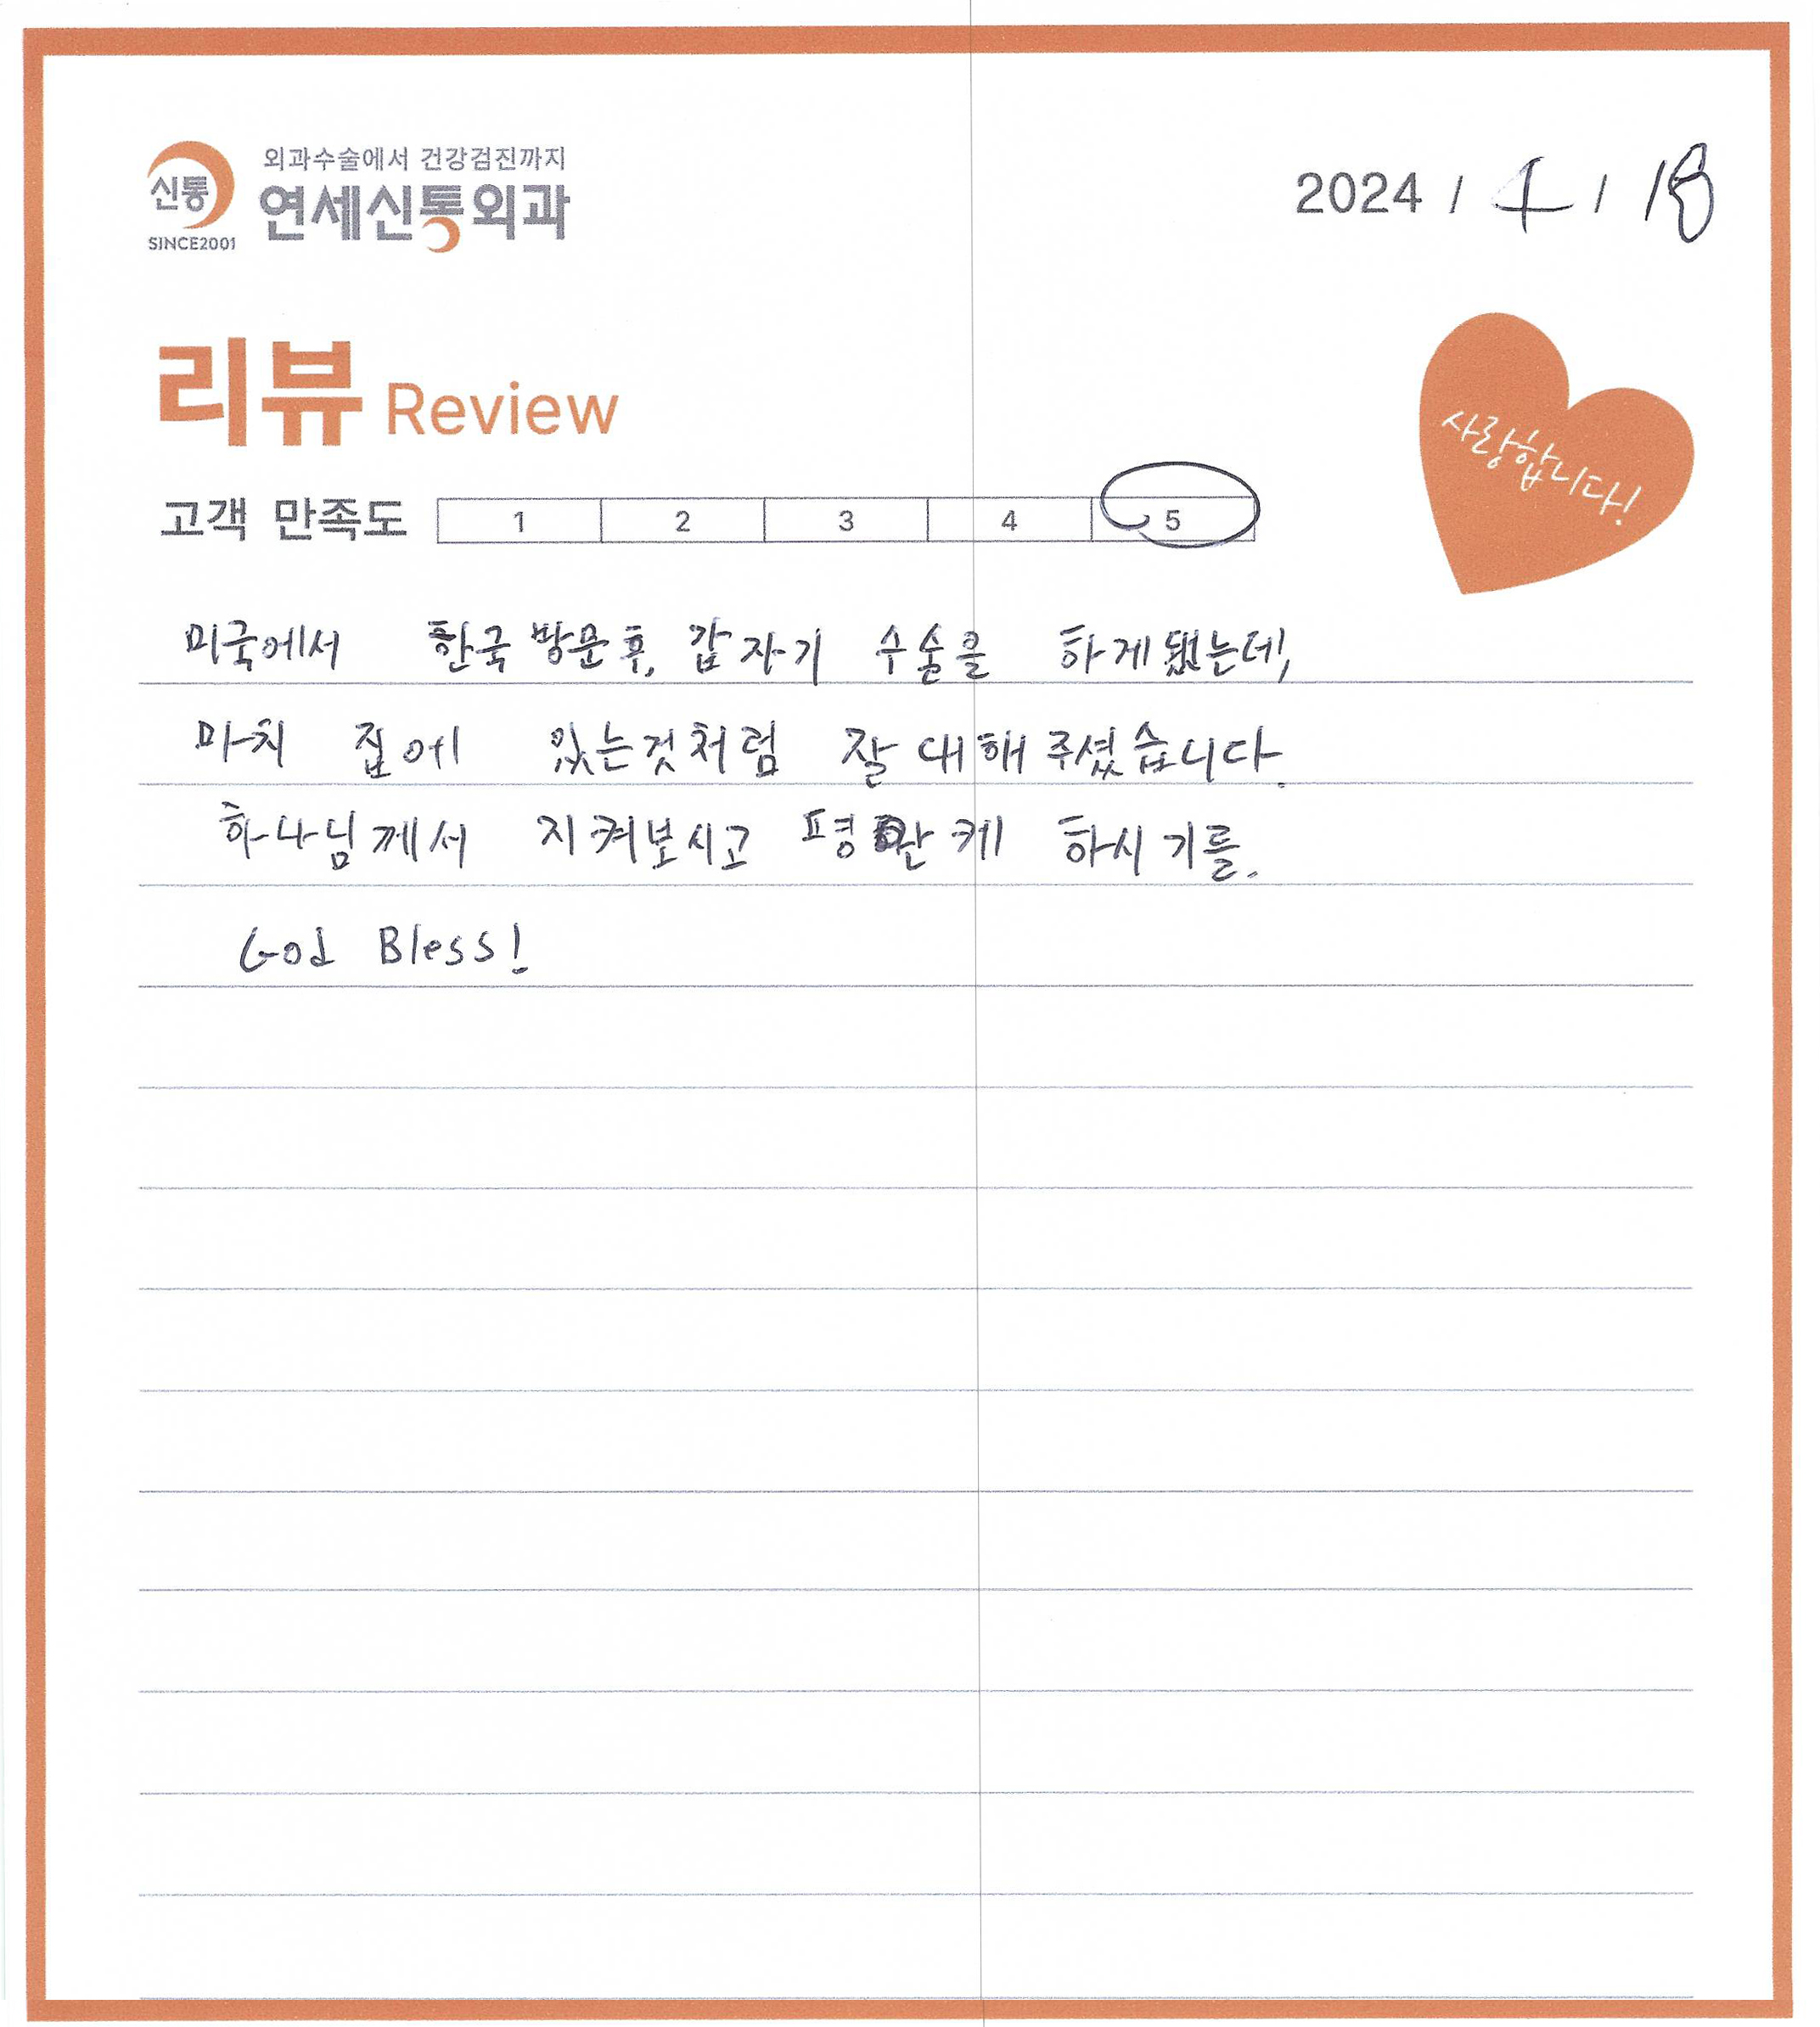 신통
SINCE2001
외과수술에서 건강검진까지
연세신통외과
2024 / 4 / 18
리뷰 Review
사랑합니다!
고객 만족도 1 2 3 4 5
미국에서 한국 방문 후, 갑자기 수술을 하게 됐는데,
마치 집에 있는것처럼 잘 대해 주셨습니다.
하나님께서 지켜보시고 평안케 하시기를.
God Bless!